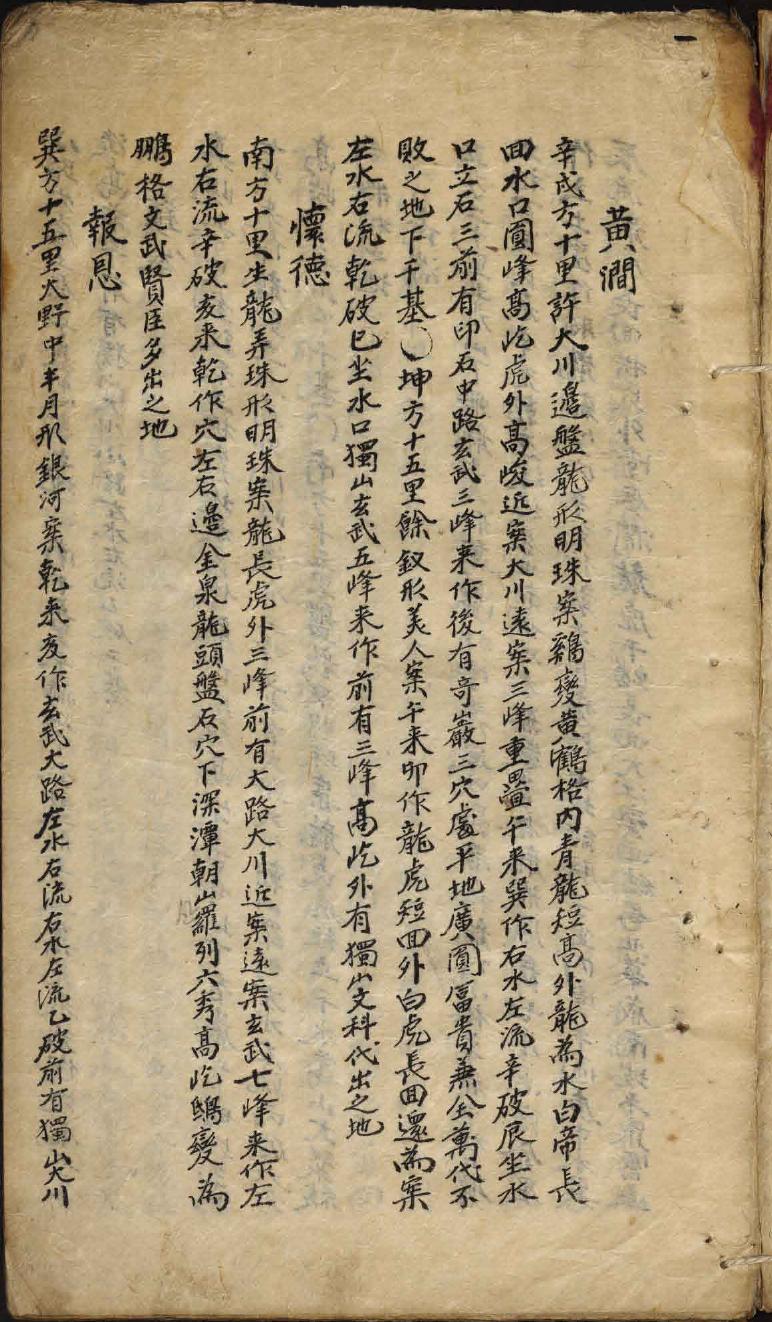 黃澗
辛戌方十里許大川邊盤龍形明珠案鷄變黃鶴格內靑龍短高外龍為水白帝長
回水口圓峰高屹虎外高峻近案大川遠案三峰重疊午来巽作右水左流辛破辰坐水
口立石三前有印石中路玄武三峰来作後有奇巖三穴處平地廣圓冨貴兼全萬代不
敗之地下千基〇坤方十五里餘釵形美人案午来卯作龍虎短回外白虎長回還為案
左水右流乾破巳坐水口獨山玄武五峰来作前有三峰高屹外有獨山文科代出之地
懷德
南方十里生龍弄珠形明珠案龍長虎外三峰前有大路大川近案遠案玄武七峰来作左
水右流辛破亥来乾作穴左右邊金泉龍頭盤石穴下深潭朝山羅列六秀高屹鷃變為
鵬格文武賢臣多出之地
報恩
巽方十五里大野中半月形銀河案乾来亥作玄武大路左水右流右水左流乙破前有獨山大川